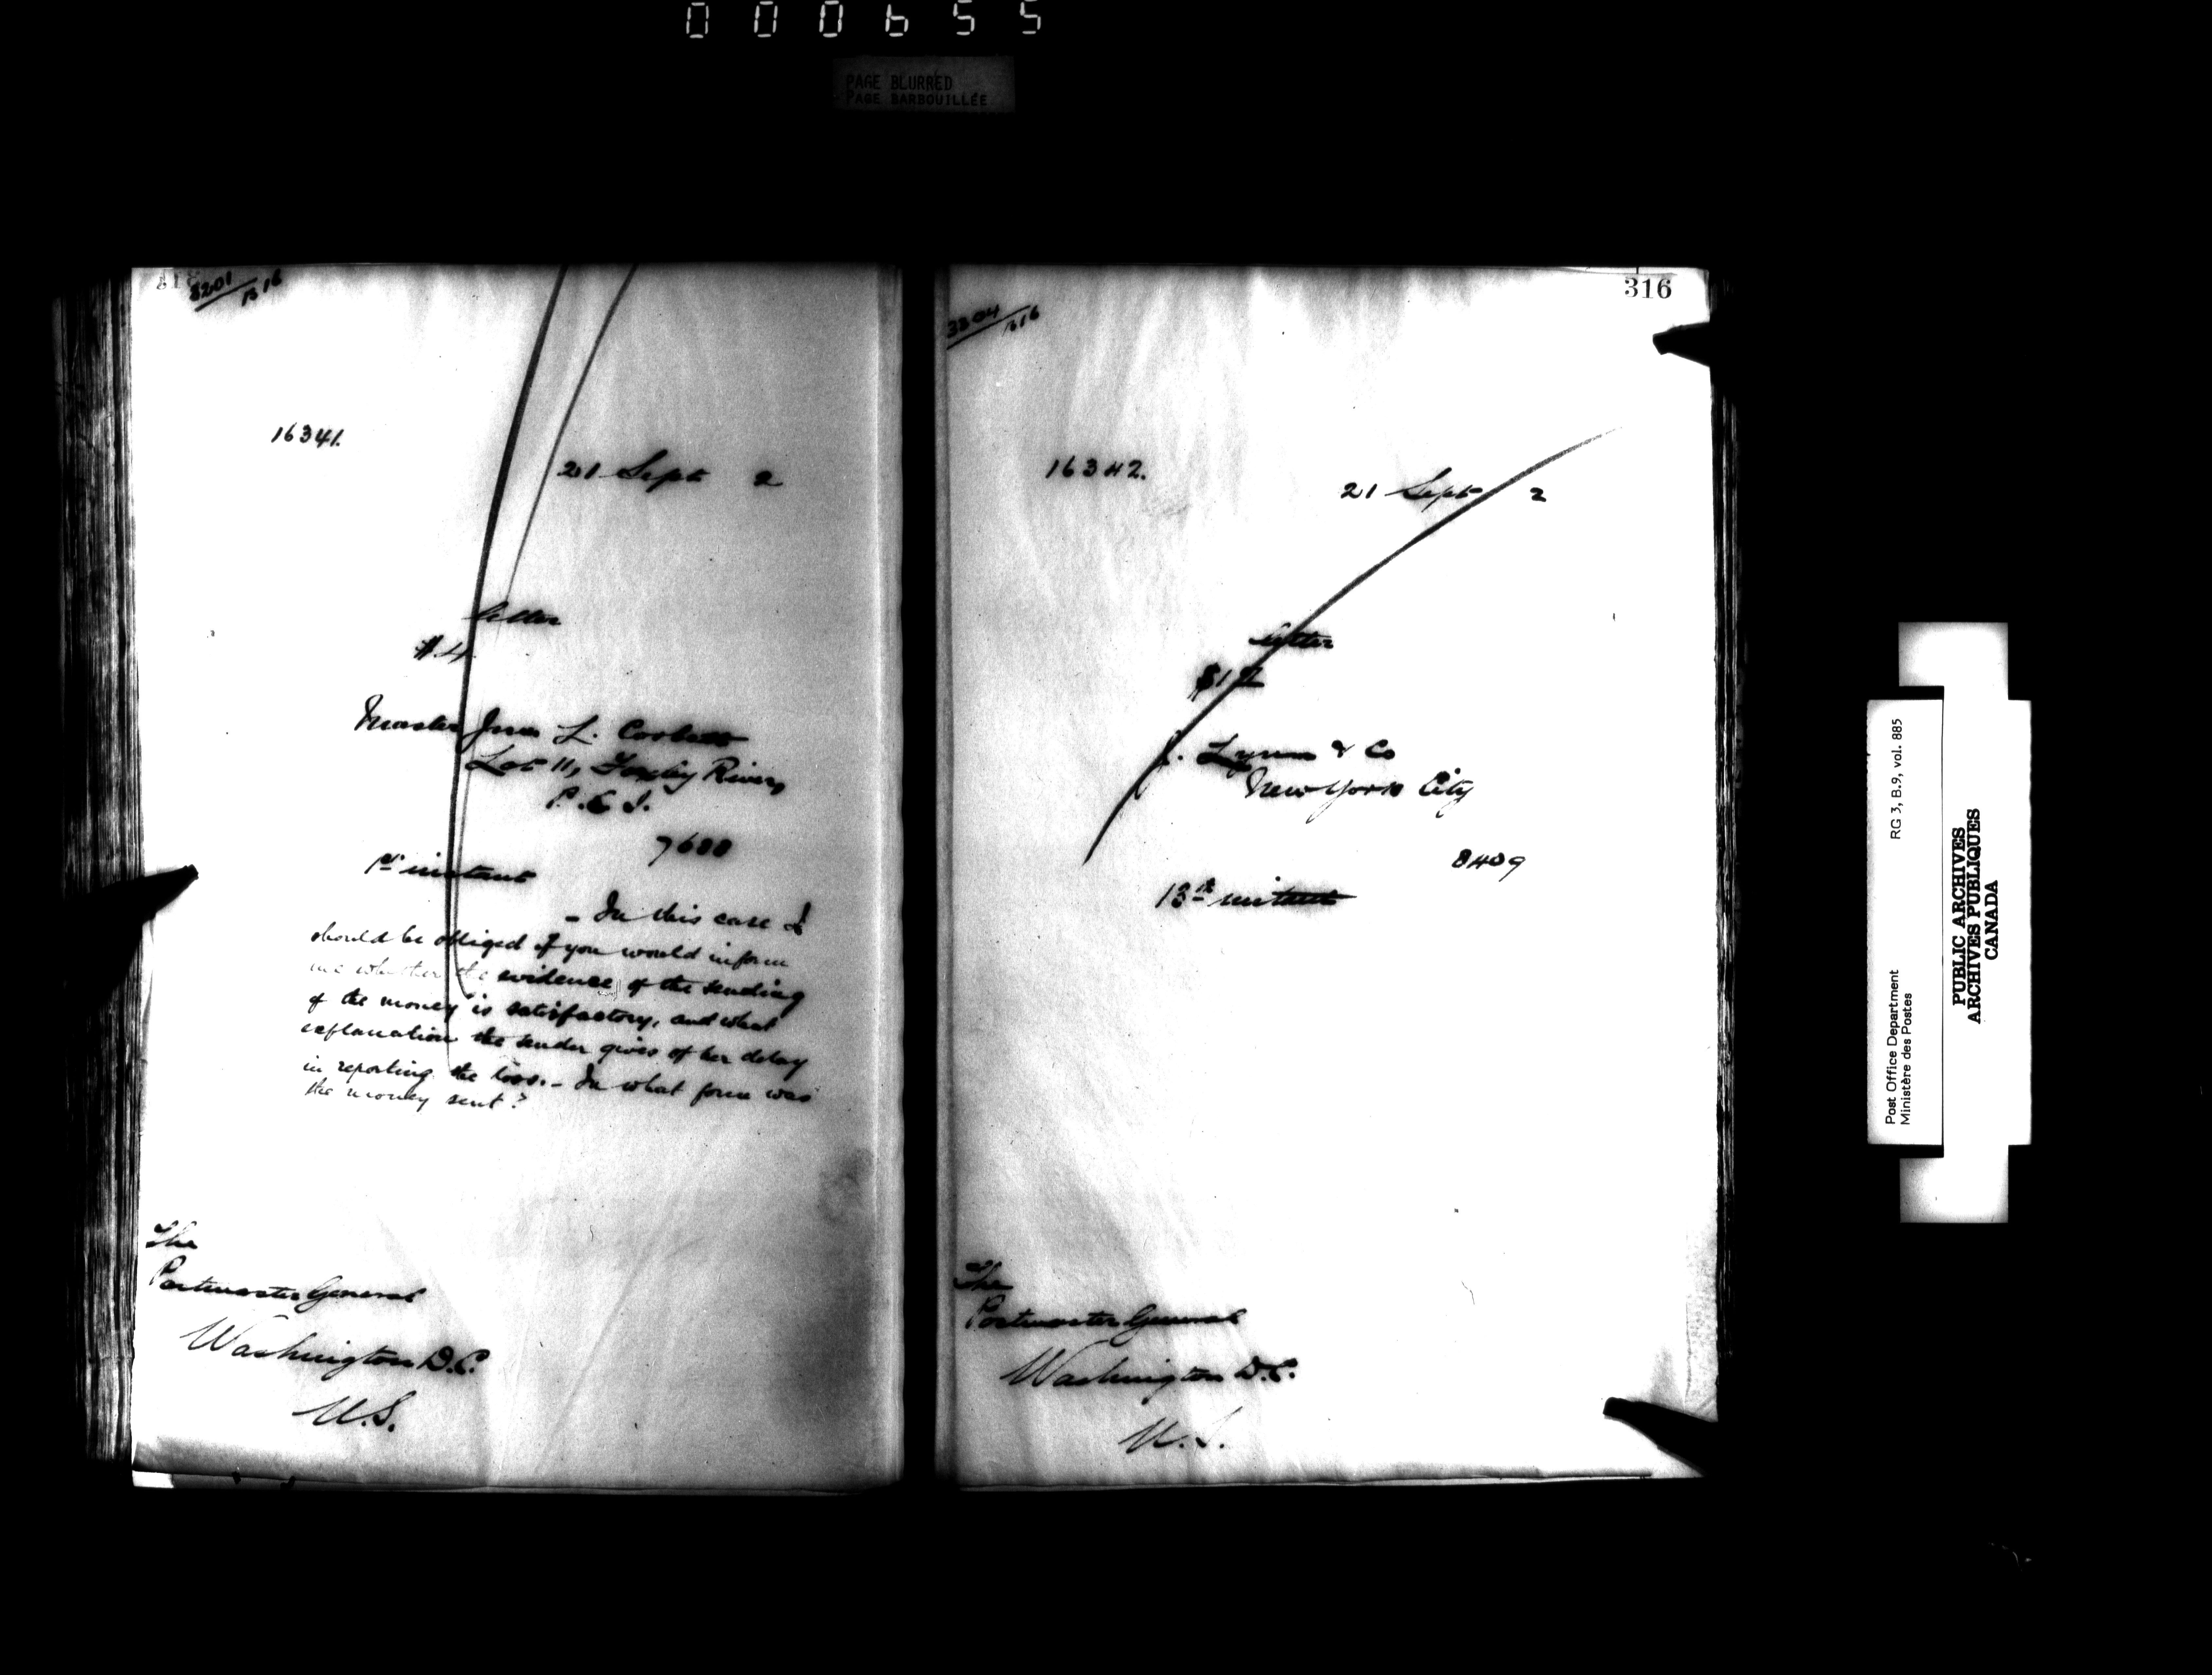 000655
PAGE BLURRED
PAGE BARBOUILLÉE
3201
B 16
16341.
21 Sept 2
Letter
$4
Master Jno. L. Corbett
Lot 11, Foxley River,
P.E.I.
7688
1st instant
- In this case I
should be obliged if you would inform
me whether the evidence of the sending
of the money is satisfactory, and what
explanation the sender gives of her delay
in reporting the loss. - In what form was
the money sent?
The
Postmaster General
Washington D.C.
U.S.
316
3304
B16
16342.
21 Sept 2
Letter
$12
J. Lynn & Co
New York City
8409
13th instant
The
Postmaster General
Washington D.C.
U.S.
Post Office Department RG 3, B.9, vol. 885
Ministère des Postes
PUBLIC ARCHIVES
ARCHIVES PUBLIQUES
CANADA